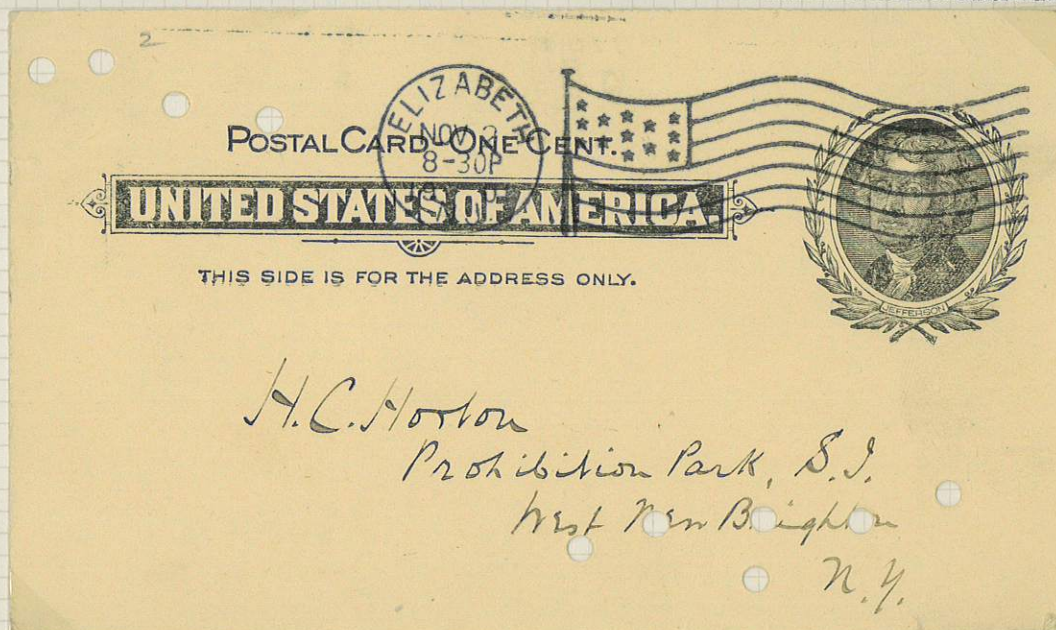 2
ELIZABETH
NOV 2
8-30P
POSTAL CARD-ONE CENT.
UNITED STATES OF AMERICA.
THIS SIDE IS FOR THE ADDRESS ONLY.
JEFFERSON
H. C. Horton
Prohibition Park, S. I.
West New Brighton
N. Y.